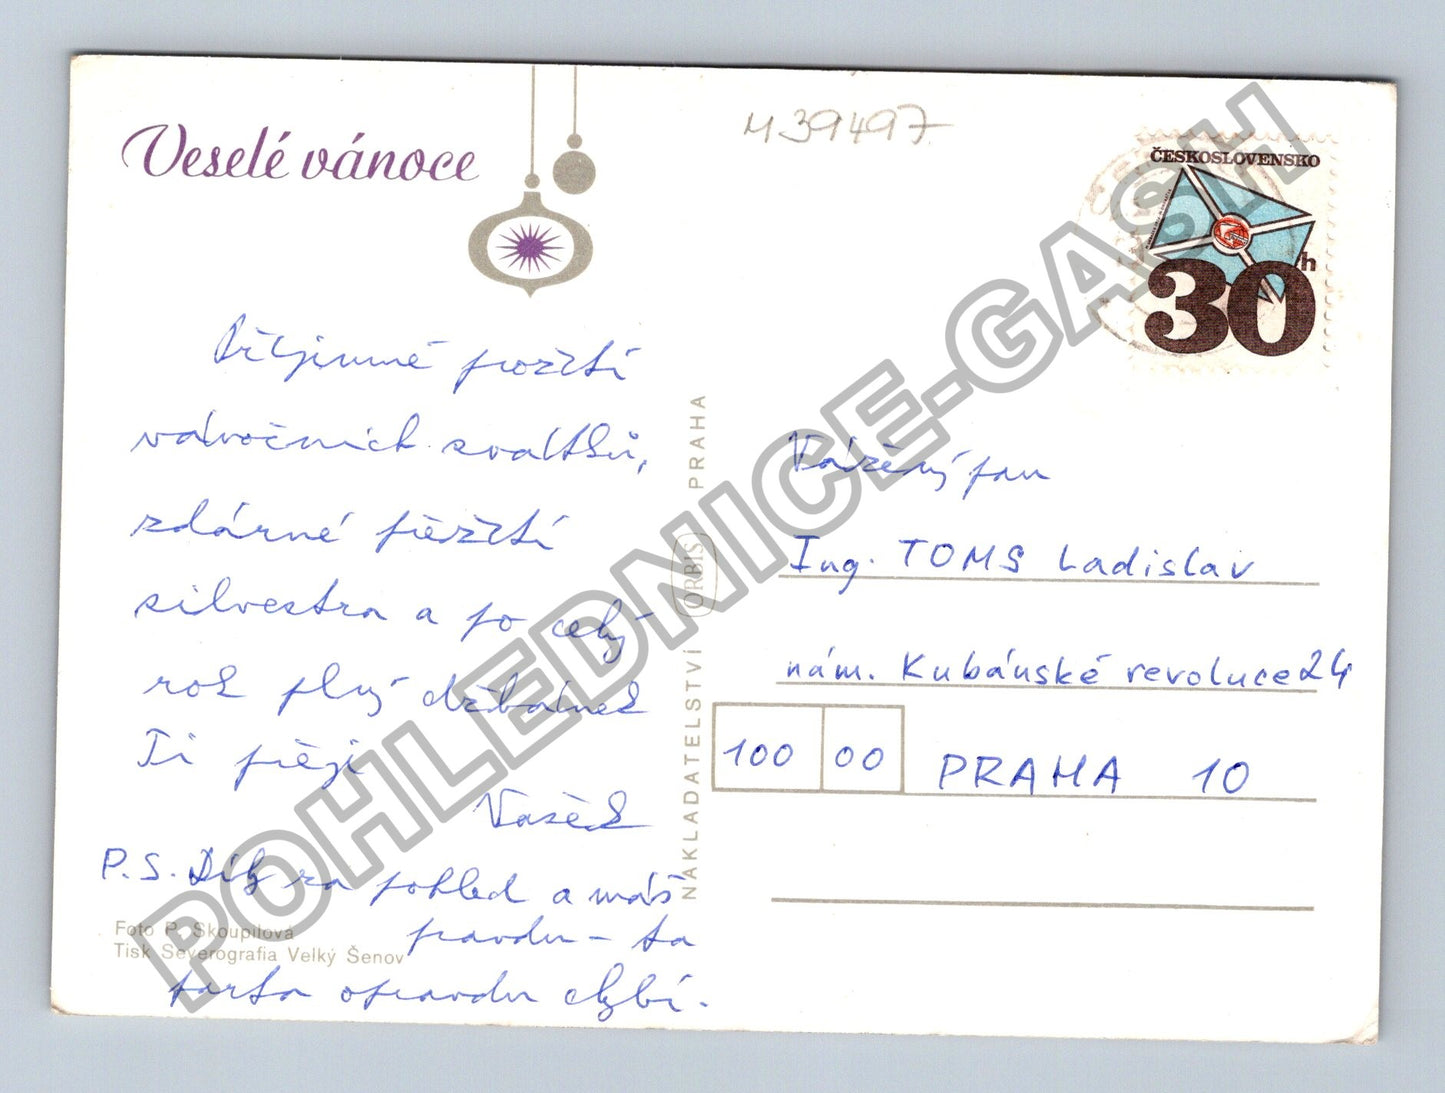 Veselé vánoce
M39497
ČESKOSLOVENSKO
30 h
Příjemné prožití
vánočních svátků,
zdárné přežití
silvestra a po celý
rok plný džbánek
Ti přeji
Vašek
P.S. Dík za pohled a máš
pravdu – ta
parta opravdu chybí.
Foto P. Skoupilová
Tisk Severografia Velký Šenov
NAKLADATELSTVÍ ORBIS PRAHA
Vážený pan
Ing. TOMS Ladislav
nám. Kubánské revoluce 24
100 00 PRAHA 10
POHLEDNICE-GASH